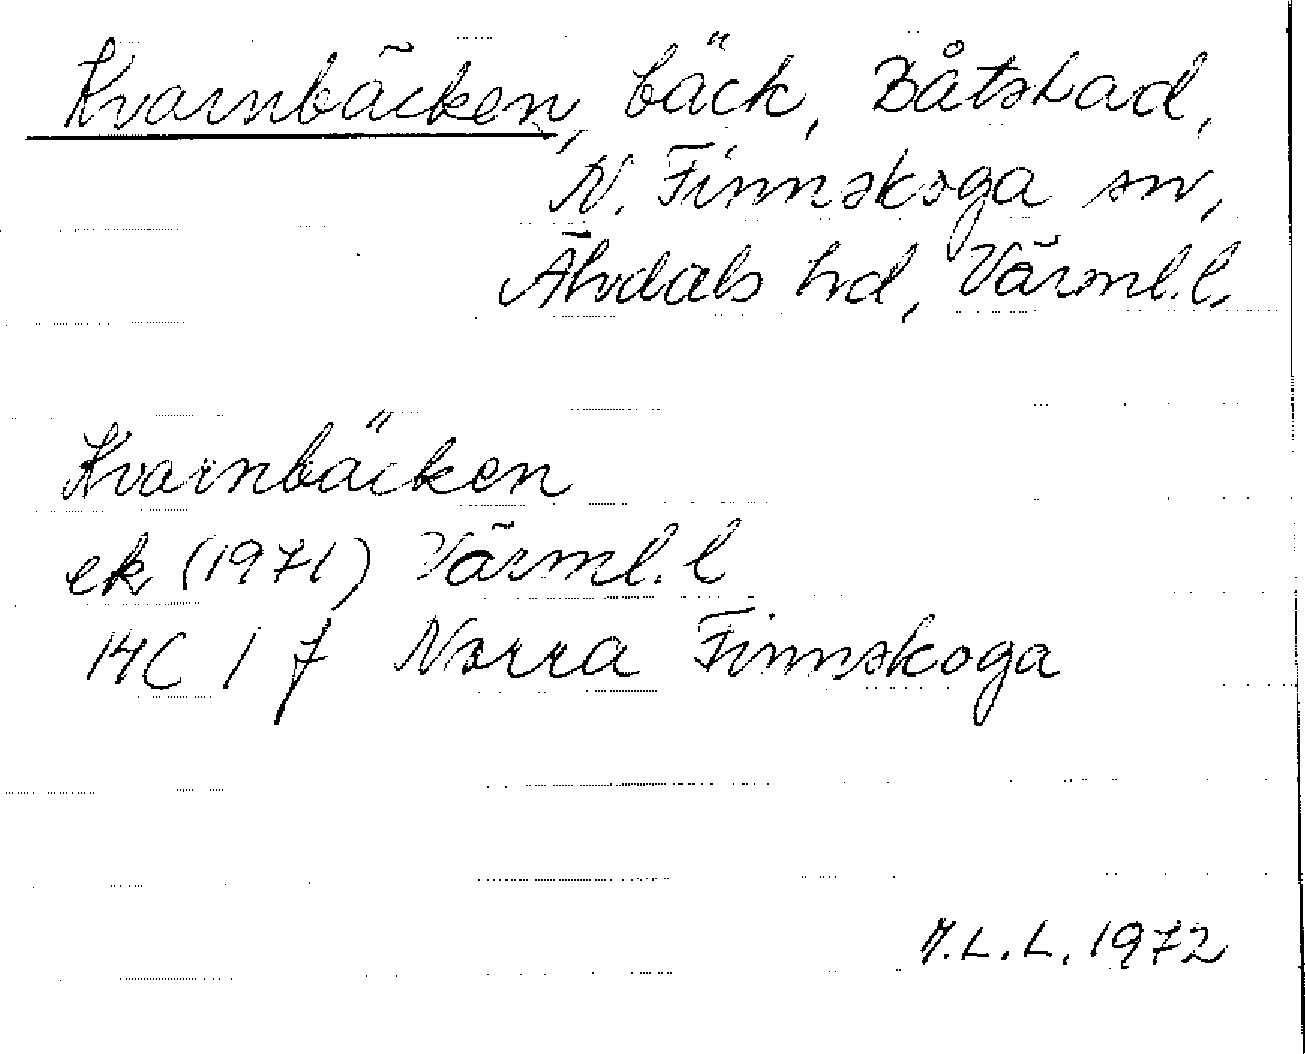 Kvarnbäcken, bäck, Båtstad,
N. Finnskoga sn,
Älvdals hd, Värml.l.
Kvarnbäcken
ek (1971) Värml. l
14C 1 f Norra Finnskoga
M.L.L. 1972